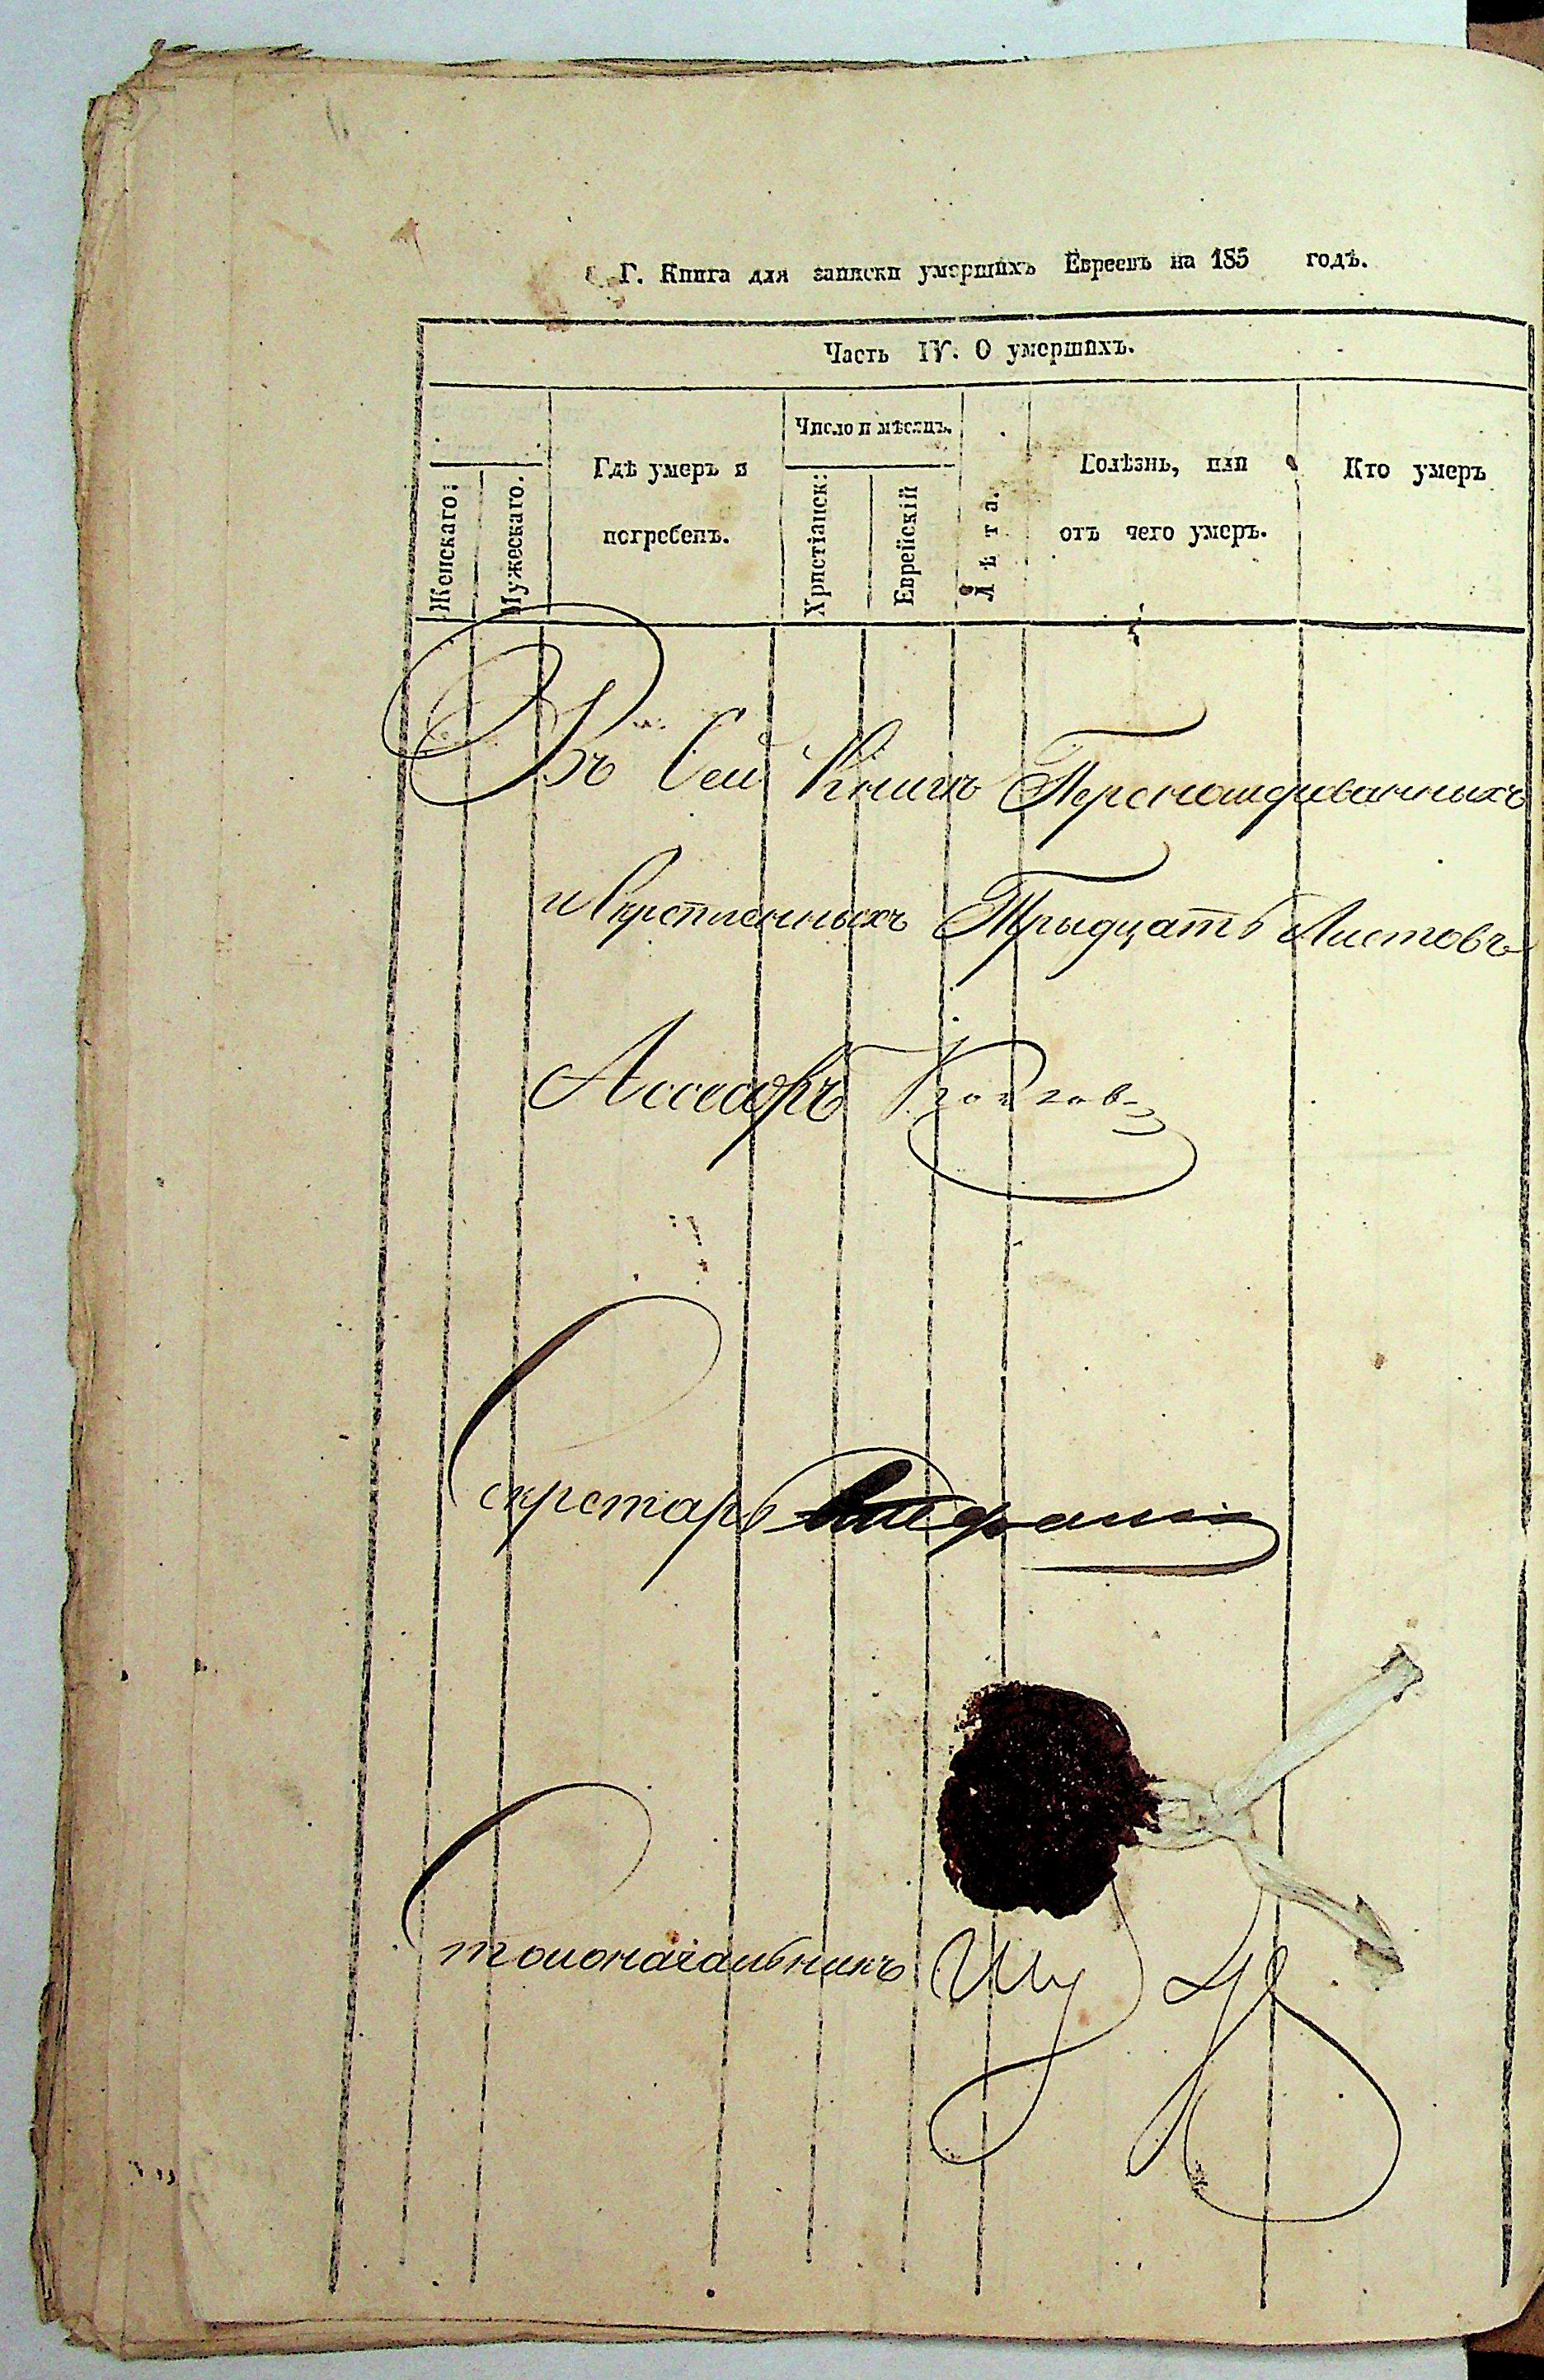 Г. Книга для записки умершихъ Евреевъ на 185 годъ.
Часть IV. О умершихъ.
Женскаго:
Мужескаго.
Гдѣ умеръ и
погребенъ.
Число и мѣсяцъ.
Христіанск:
Еврейскій
Лѣта.
Болѣзнь, или
отъ чего умеръ.
Кто умеръ
Въ Сей Книгѣ Переномерованныхъ
и Скрепленныхъ Трыдцать Листовъ
Ассесоръ
Секретарь
Столоначальникъ